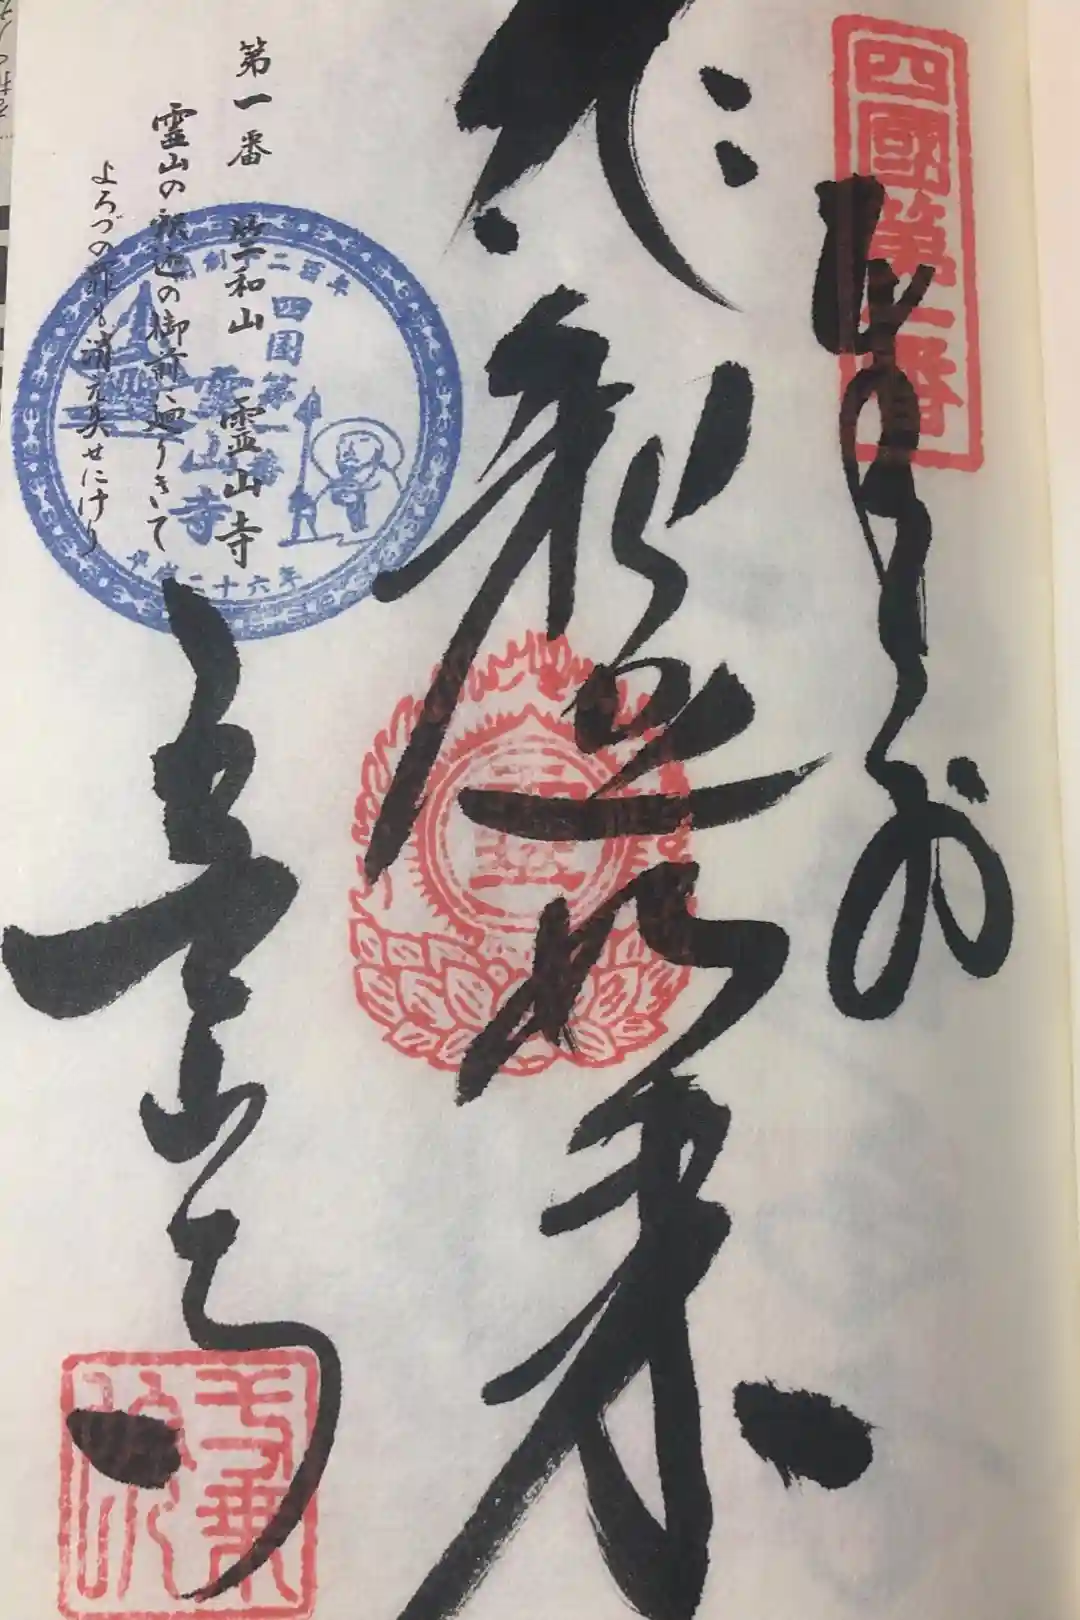 四國第一番
奉拜
釈迦如来
霊山寺
第一番 竺和山 霊山寺
霊山の釈迦の御前に廻りきて
よろづの罪も消え失せにけり
四国第一番
霊山寺
二十六年